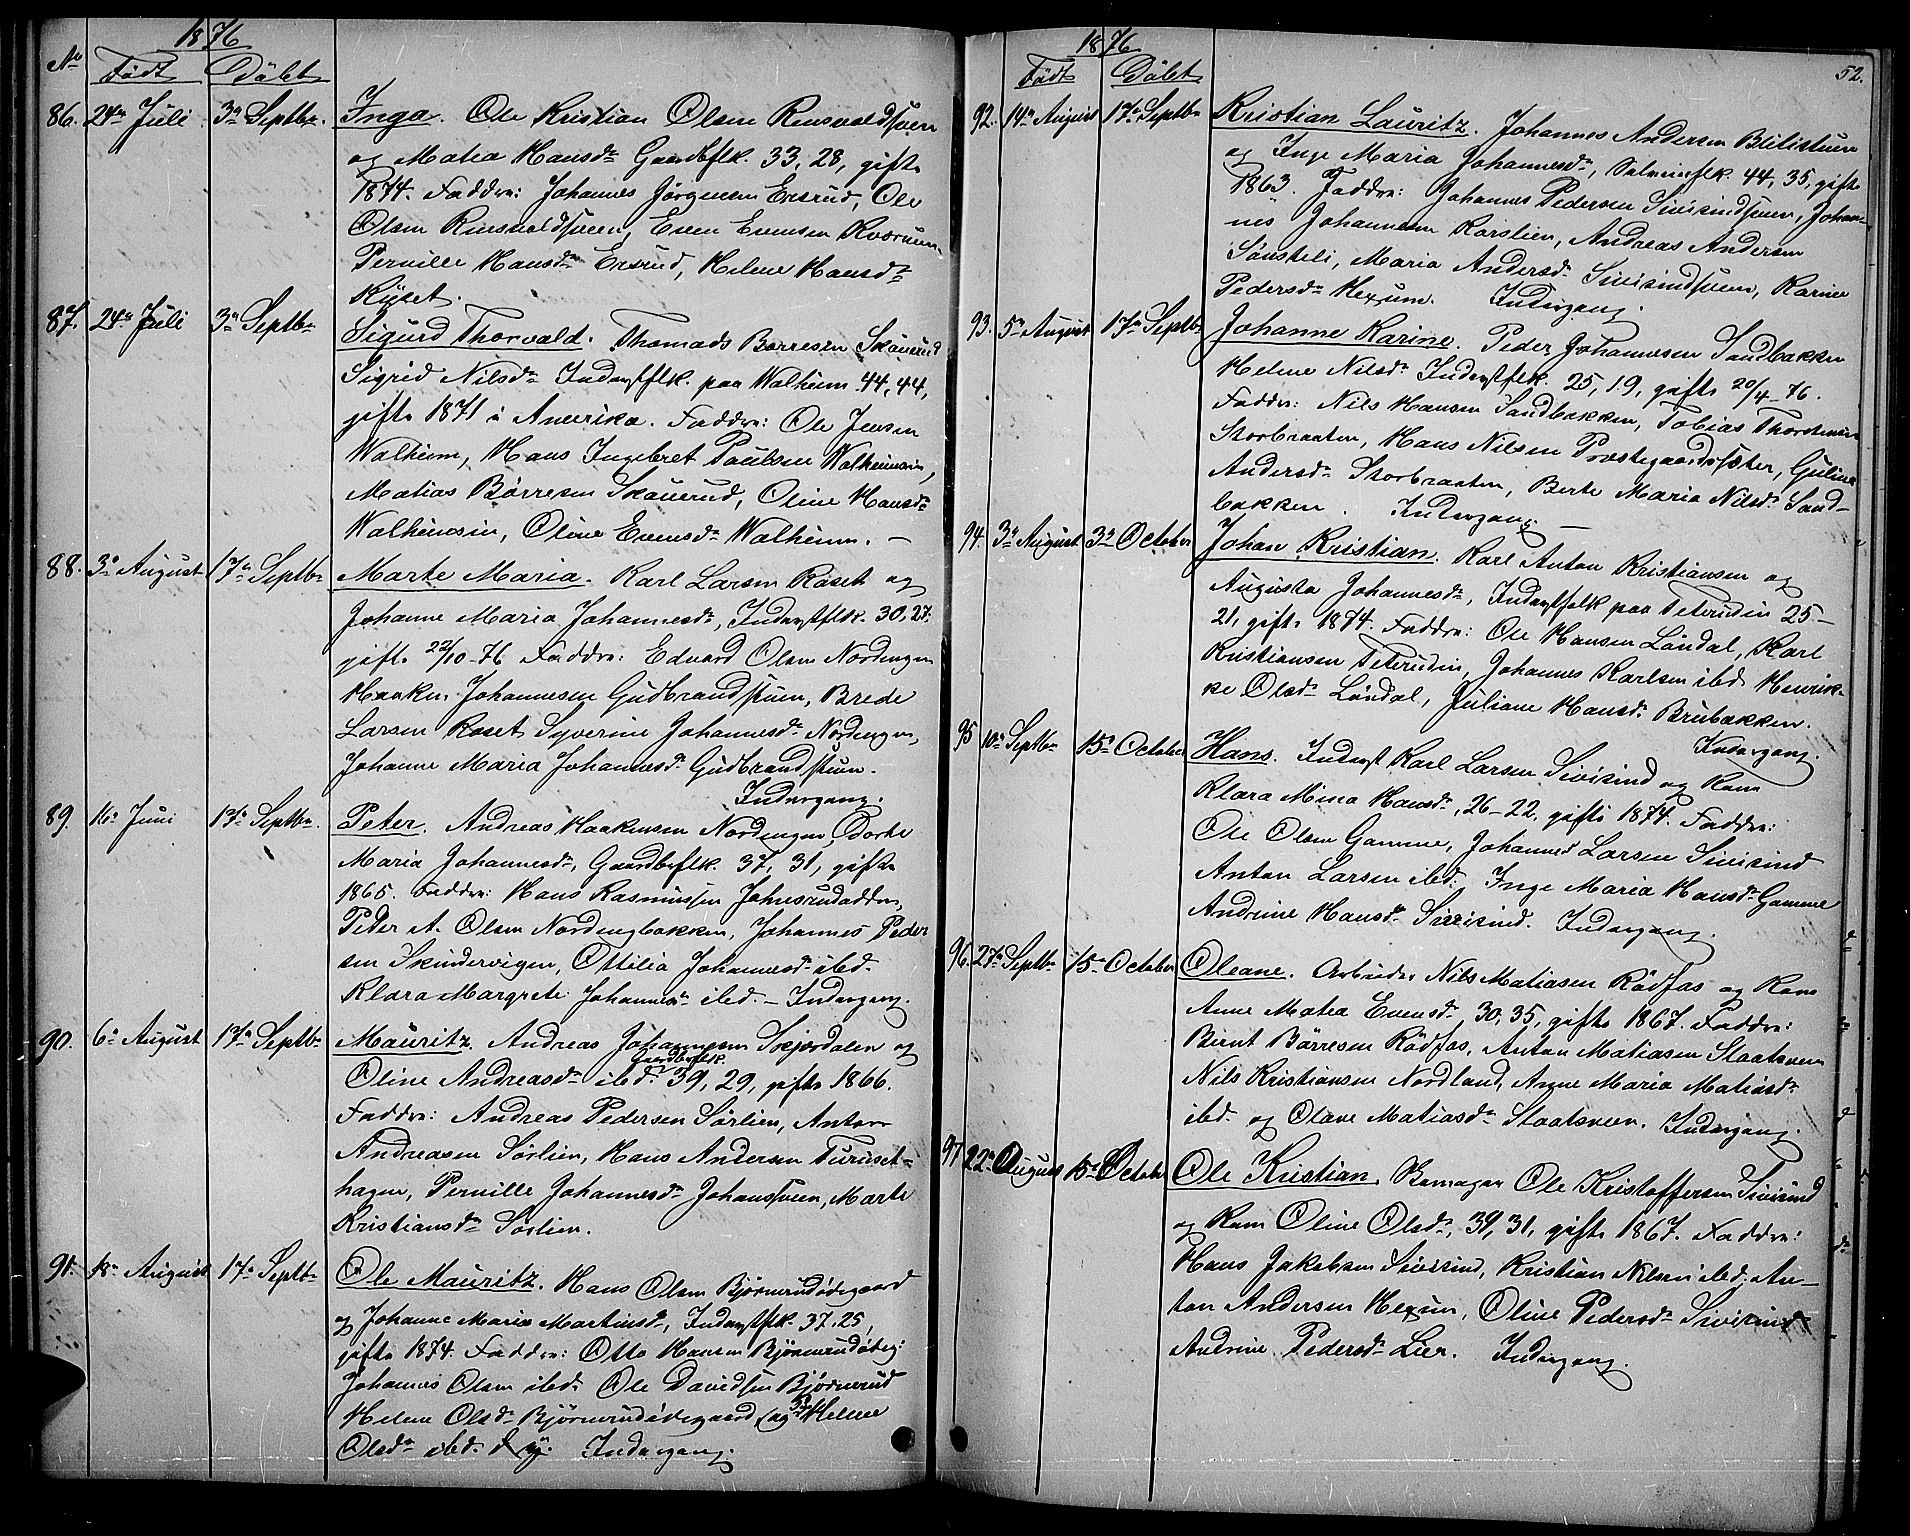 1876
No Födt Döbt
86. 24de Juli 3de Septbr. Inga. Ole Kristian Olsen Rensvoldsveen
og Matea Hansdr Gaardbflk. 33, 28, gifte
1874. Faddre: Johannes Jörgensen Ensrud, Ole
Olsen Rensvoldsveen, Even Evensen Kværnum
Pernille Hansdr Ensrud, Helene Hansdr
Röset.
87. 24de Juli 3de Septbr Sigurd Thorvald. Thomads Börresen Sköuerud
Sigrid Nilsdr Inderstflk. paa Walheim 44, 44,
gifte 1871 i Amerika. Faddre: Ole Jensen
Walheim, Hans Ingebret Paulsen Walheimsin,
Matias Börresen Skouerud, Oline Hansdr
Walheimsin, Oline Evensdr Walheim. —
88. 3de August 17de Septbr Marte Maria. Karl Larsen Röset og
Johanne Maria Johannesdr, Inderstflk. 30, 27,
gifte 22/10-76 Faddre: Edvard Olsen Nordengen
Haaken Johannesen Gudbrandstuen, Brede
Larsen Roset Syverine Johannesdr Nordengen,
Johanne Maria Johannesdr Gudbrandstuen.
Indergang.
89. 16de Juni 17de Septbr. Peter. Andreas Haakensen Nordengen, Dorte
Maria Johannesdr, Gaardbflk. 37, 31, gifte
1865. Faddre: Hans Rasmussen Johnsrud
Peder A. Olsen Nordengbakken, Johannes Peder
sen Skindervigen, Ottilia Johannesdr ibd.
Klara Margrete Johannesdr ibd. — Indergang.
90. 6te August 17de Septbr Mauritz. Andreas Johannesen Skjærdalen og
Gaardbflk.
Oline Andreasdr ibd. 39, 29, gifte 1866.
Faddre: Andreas Pedersen Sörlien, Anton
Andreasen Sörlien, Hans Andersen Turuset-
hagen, Pernille Johannesdr Johansveen, Marte
Kristiansdr Sörlien.
91. 18de August 17de Septbr Ole Mauritz. Hans Olsen Björnerudödegaard
og Johanne Marie Martinsdr, Inderstflk. 37. 25,
gifte 1874. Faddre: Otto Hansen Björnerudödeg:
Johannes Olsen ibd. Ole Davidsen Björnerud
Helene Olsdr Björnerudödegaard, og Helene
Olsdr ibd. Indergang.
1876 52.
Födt Döbt
92. 14de August 17de Septbr Kristian Lauritz. Johannes Andersen Blilistuen
og Inge Maria Johannesdr, Selveierflk. 44, 35, gifte
1863. Faddre: Johannes Pedersen Sivesindsveen, Johan-
nes Johannesen Karslien, Andreas Andersen
Sönsteli, Maria Andersdr Sivesindsveen, Karine
Pedersdr Hexum. Indergang.
93. 5te August 17de Septbr Johanne Karine. Peder Johannesen Sandbakken
Helene Nilsdr Inderstflk. 25, 19, gifte 20/4-76.
Faddre: Nils Hansen Sandbakken, Tobias Thorstensen
Storbraaten, Hans Nilsen Præstegaardssæter, Guline
Andersdr Storbraaten, Berte Maria Nilsdr Sand-
bakken. Indergang. —
94. 3de August 3de October Johan Kristian. Karl Anton Kristiansen og
Augusta Johannesdr, Inderstfolk paa Teterudin 25 —
21, gifte 1874. Faddre: Ole Hansen Löndal, Karl
Kristiansen Teterudin, Johannes Karlsen ibd. Henrik-
ke Olsdr Löndal, Juliane Hansdr Brubakken.
Indergang.
95 10de Septbr 15de October Hans. Inderst Karl Larsen Sivesind og Kone
Klara Mina Hansdr, 26-22, gifte 1874. Faddre:
Ole Olsen Gamme, Johannes Larsen Sivesind
Anton Larsen ibd. Inge Maria Hansdr Gamme
Andrine Hansdr Sivesind. Indergang.
96. 27de Septbr 15de October Oleane. Arbeider Nils Matiasen Rödfos og Kone
Anne Matea Evensdr 30, 35, gifte 1867. Faddre:
Bernt Börresen Rödfos, Anton Matiasen Staatsveen
Nils Kristiansen Nordland, Anne Maria Matiasdr
ibd. og Olave Matiasdr Staatsveen. Indergang.
97 22de August 15de October Ole Kristian. Bomager Ole Kristoffersen Sivesind
og Kone Oline Olsdr, 39, 31, gifte 1867. Faddre:
Hans Jakobsen Sivesind, Kristian Nilsen ibd. An-
ton Andersen Hexum, Oline Pedersdr Sivesind
Andrine Pedersdr Lier. Indergang.